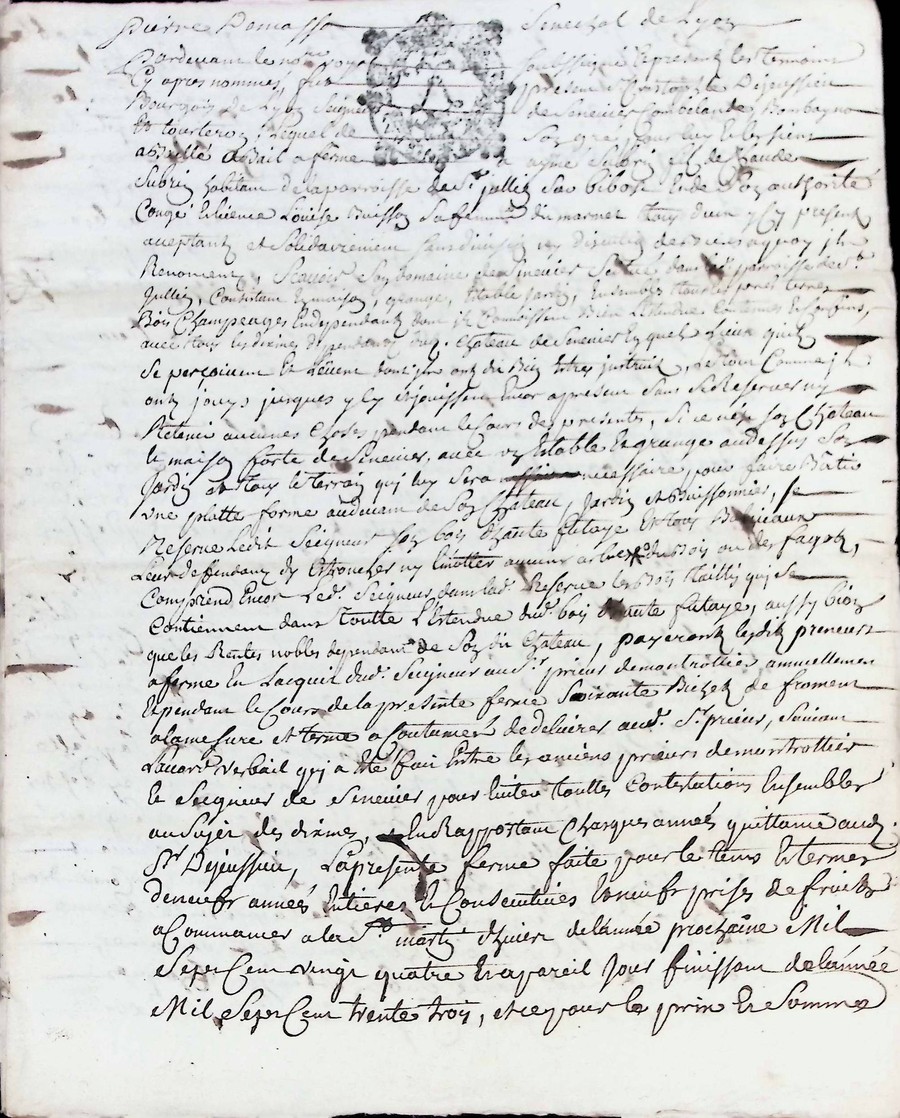 Pierre Senechal de Lyon
Pardevant le no.re soussigné et presents les temoins
cy apres nommés, fut present
Bourgeois de Lyon Seigneur de Senevier
et lequel de son gré, pour luy et les siens
a Bail a ferme a aymé Subrin fils de Claude
Subrin habitant de la parroisse de St. jullien sur bibost et de son authorité
congé et licence Louise Buisson sa femme du marnet tous deux y cy present
acceptants et solidairement sans division ny discution de
Renoncent, Scavoir son domaine de Senevier Scitué dans lad. parroisse de St.
Jullien, Consistant en maison, grange, Etable Jardin, Ensembles tous les prés terres
Bois Champeages Endependants dont ils Connoissent Bien L'etendue contenus et Confins,
avec tous les dixmes dependants dud. Chateau de Senevier En quels Lieux qu'ils
Se perçoivent Et Levent dont ils ont dit Bien Estre instruits, Le tout Comme ils
ont jouys jusques y Cy et jouissent Encor apresent Sans se Reserver ny
Retenir aucunes Choses pendant le Cours des presentes, Si ce n'est son Chateau
et maison forte de Senevier, avec un Estable et grange audessus Son
Jardin et tous le terrain qui luy Sera necessaire pour faire Batir
une platte forme audevant de Son Chateau, Jardin et Buissonnier, se
Reserve Ledit Seigneur Son bois d'haute futaye Et tous Baliveaux
Leur deffendant d'y Ebrancher ny Emotter aucuns arbres du Bois ou des fagots,
Comprend Encor Led. Seigneur dans lad. Reserve les Bois taillis qui se
Contiennent dans toutte L'Estendue dud. bois d'haute futaye, aussy bien
que les Rentes nobles dependants de Son dit Chateau, payeront lesdits preneurs
a ferme En Lacquit dud. Seigneur aud. Sr. prieur de montrottier annuellement
Et pendant le Cours de la presente ferme Soixante Bichets de froment
a la mesure et terme accoutumés de delivrer aud. Sr. prieur, Suivant
L'accord verbail qui a Eté fait Entre les anciens prieurs de montrottier
le Seigneur de Senevier pour Eviter touttes Contestations Ensembles
au Sujet des dixmes, En Rapportant Chasques années quittance aud.
Sr. Dejeussieu, La presente ferme faite pour le tems Et terme
de neufs années Entieres et Consecutives et neufs prises de fruits
a Commancer a la St. martin d'hiver de l'année prochaine Mil
Sept Cent vingt quatre Et a pareil Jour finissant de l'année
Mil Sept Cent trente trois, et ce pour le prix Et Somme